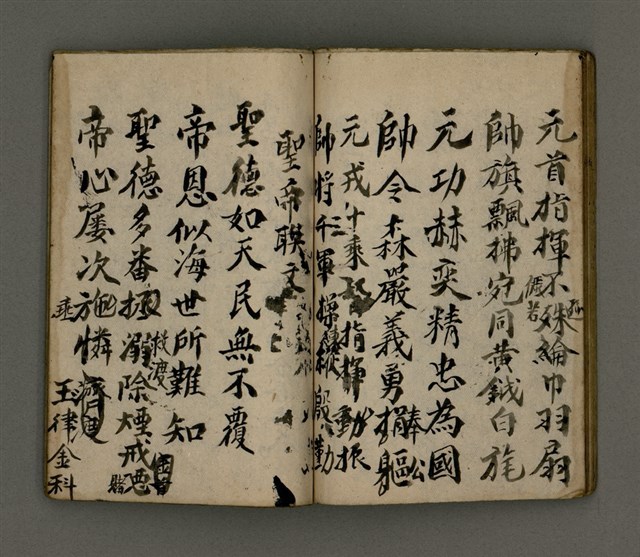 元首指揮不殊綸巾羽扇
帥旗飄拂宛同黃鉞白旄
元功赫奕精忠為國
帥令森嚴義勇捐軀
元戎十乘指揮動振
帥將三軍操縱殷勤
聖帝聯文
聖德如天民無不覆
帝恩似海世所難知
聖德多番拯溺除煙戒酒
帝心屢次施憐濟
玉律金科